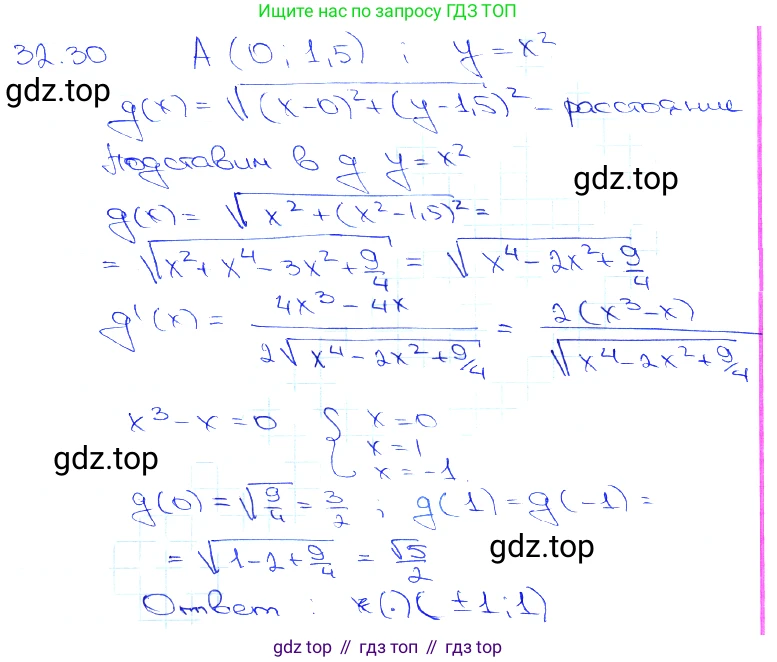 Ищите нас по запросу ГДЗ ТОП
32.30 A (0; 1,5) ; y = x²
gdz.top
g(x) = √((x-0)² + (y-1,5)²) - расстояние
Подставим в g y = x²
gdz.top
g(x) = √(x² + (x² - 1,5)²) =
= √(x² + x⁴ - 3x² + 9/4) = √(x⁴ - 2x² + 9/4)
g'(x) = (4x³ - 4x)/(2√(x⁴ - 2x² + 9/4)) = 2(x³ - x)/√(x⁴ - 2x² + 9/4)
x³ - x = 0 { x = 0
x = 1
x = -1
gdz.top
g(0) = √(9/4) = 3/2 ; g(1) = g(-1) =
= √(1 - 2 + 9/4) = √5/2
gdz.top
Ответ : (·)(±1; 1)
gdz top // гдз топ // gdz top